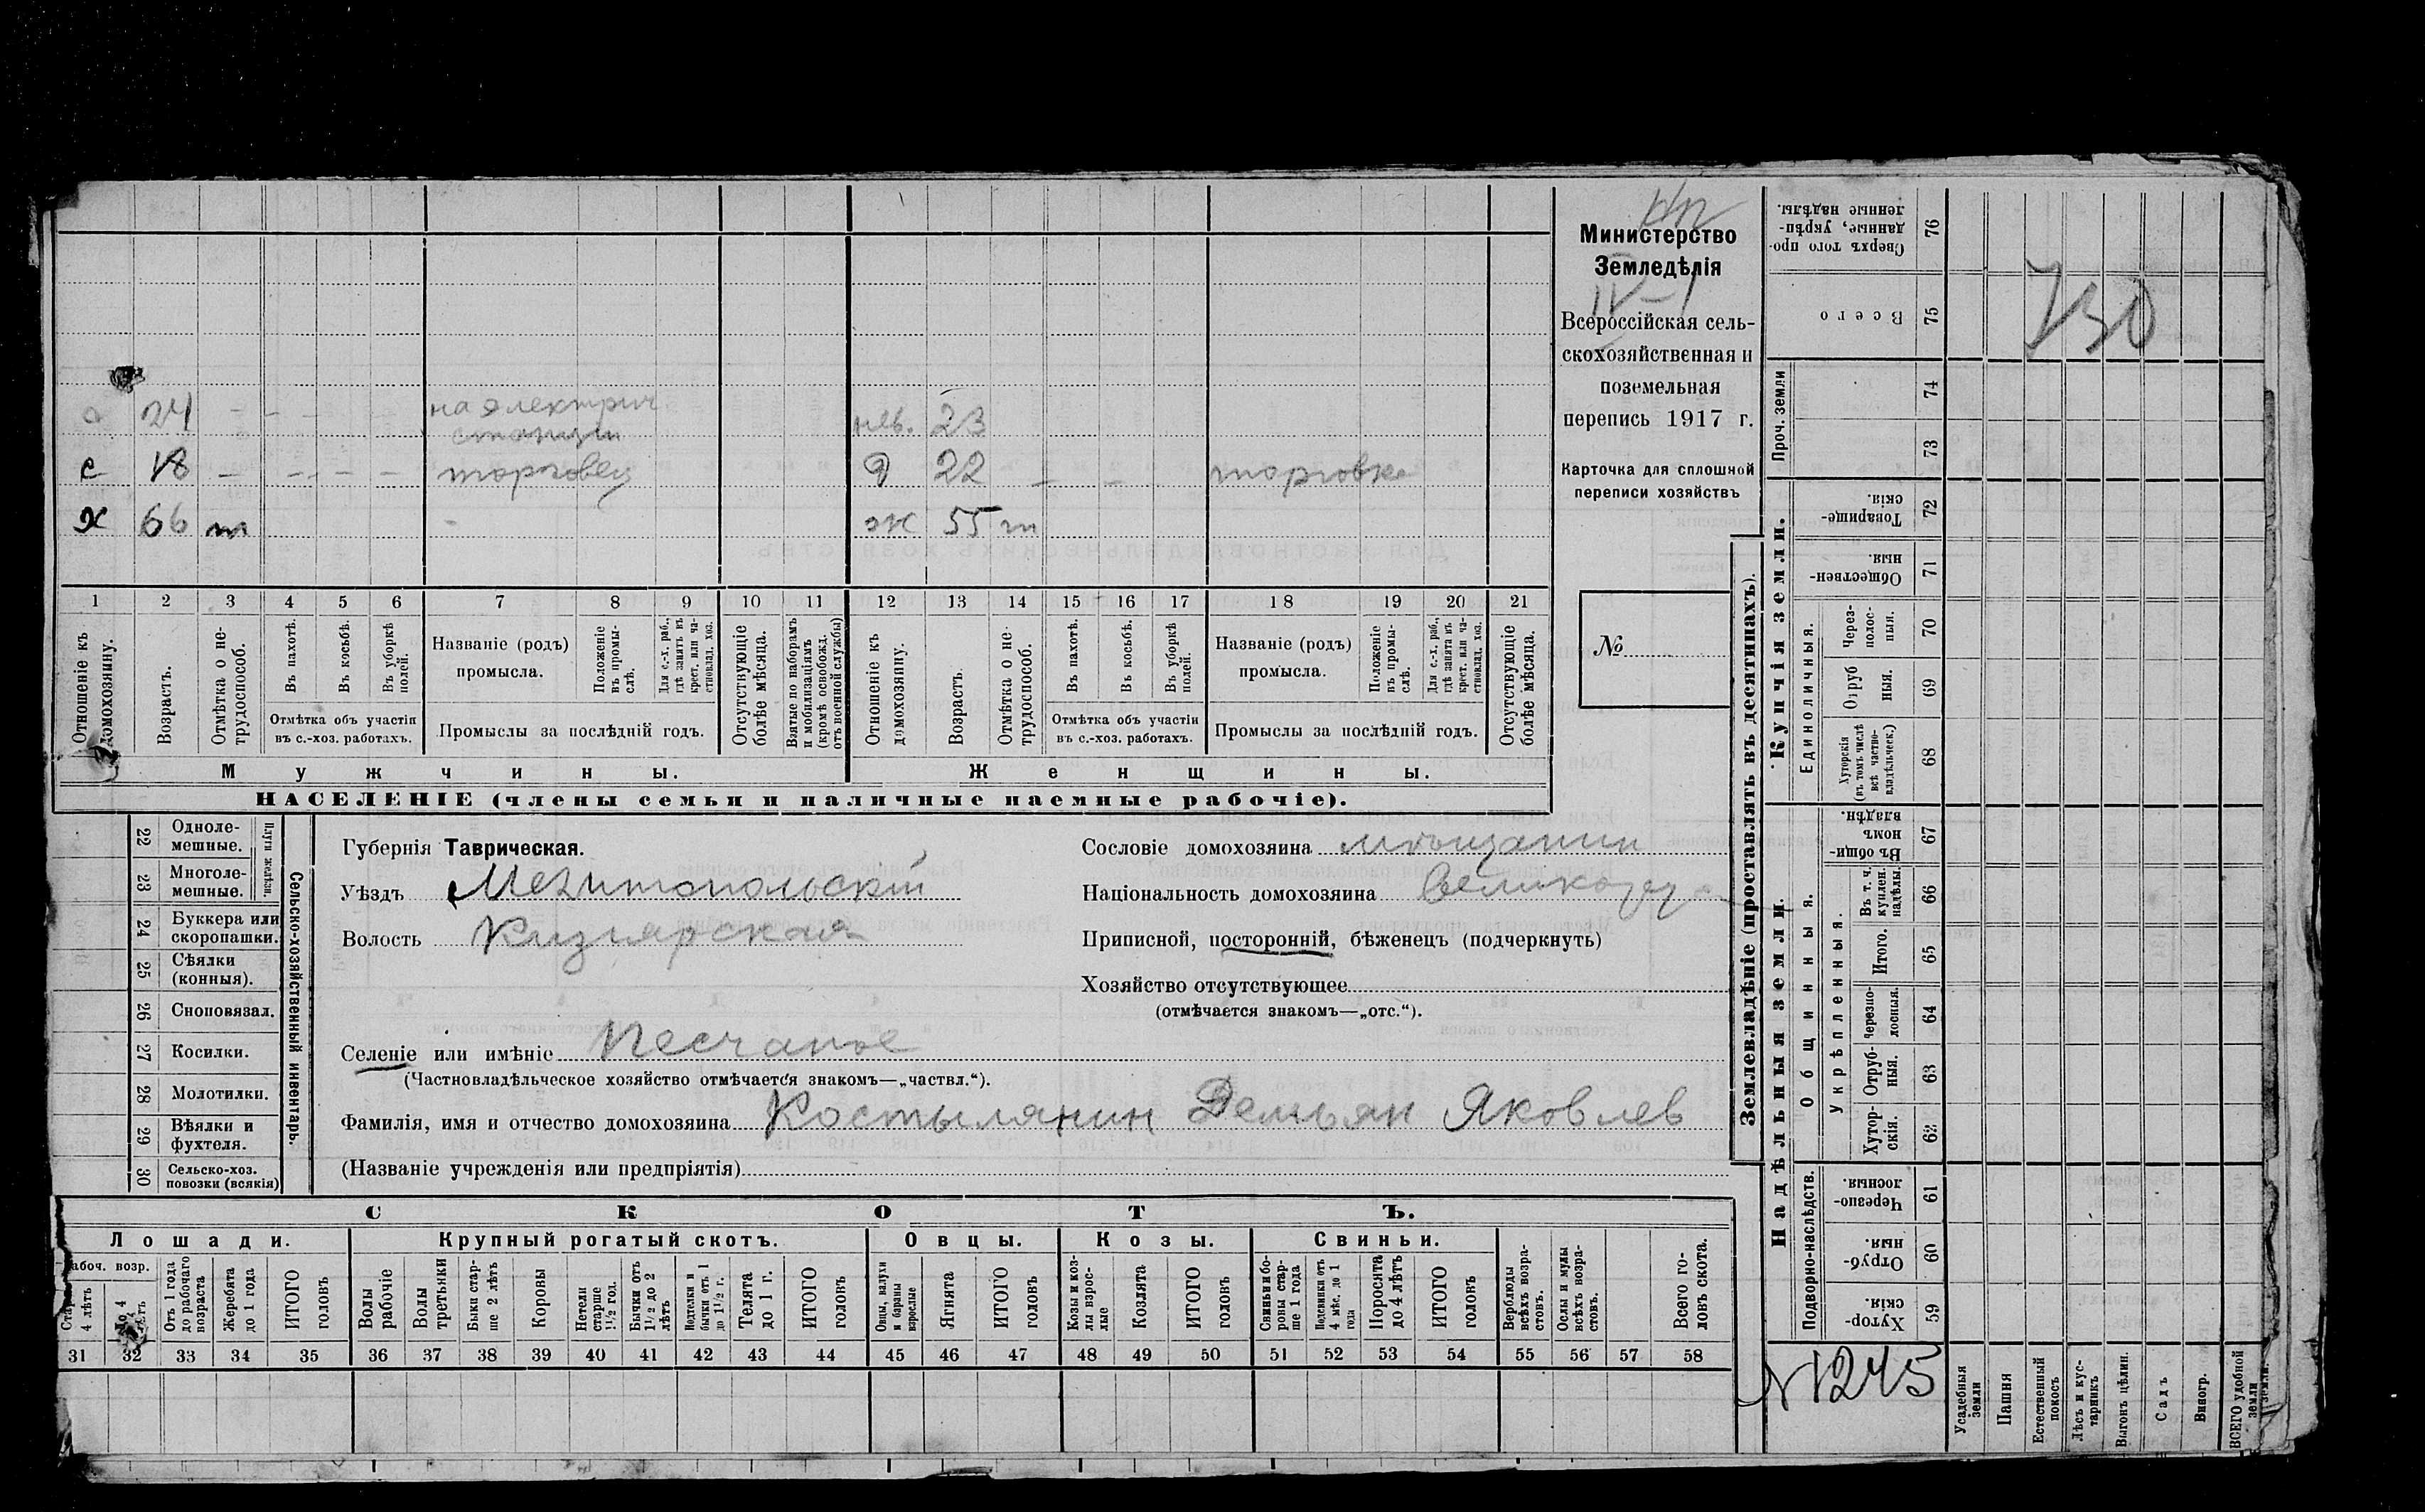 Министерство
Земледѣлія
IV-1
Всероссійская сель-
скохозяйственная и
поземельная
перепись 1917 г.
Карточка для сплошной
переписи хозяйствъ
№
24 на электрич
станции нев. 23
с 18 торговец д 22 торговка
х 66 т ж 55 т
1 2 3 4 5 6 7 8 9 10 11 12 13 14 15 16 17 18 19 20 21
Отношеніе къ домохозяину.
Возрастъ.
Отмѣтка о не-трудоспособ.
Въ пахотѣ.
Въ косьбѣ.
Въ уборкѣ полей.
Отмѣтка объ участіи
въ с.-хоз. работахъ.
Названіе (родъ)
промысла.
Положеніе въ промы-слѣ.
Для с.-х. раб., гдѣ занятъ въ крест. или ча-стновлад. хоз.
Промыслы за послѣдній годъ.
Отсутствующіе болѣе мѣсяца.
Взятые по наборамъ и мобилизаціямъ (кромѣ освобожд. отъ военной службы)
Отношеніе къ домохозяину.
Возрастъ.
Отмѣтка о не-трудоспособ.
Въ пахотѣ.
Въ косьбѣ.
Въ уборкѣ полей.
Отмѣтка объ участіи
въ с.-хоз. работахъ.
Названіе (родъ)
промысла.
Положеніе въ промы-слѣ.
Для с.-х. раб., гдѣ занята въ крест. или ча-стновлад. хоз.
Промыслы за послѣдній годъ.
Отсутствующіе болѣе мѣсяца.
Мужчины. Женщины.
НАСЕЛЕНІЕ (члены семьи и наличные наемные рабочіе).
Сельско-хозяйственный инвентарь.
Плуги желѣзн.
22 Одноле-мешные.
23 Многоле-мешные.
24 Буккера или скоропашки.
25 Сѣялки (конныя).
26 Сноповязал.
27 Косилки.
28 Молотилки.
29 Вѣялки и фухтеля.
30 Сельско-хоз. повозки (всякія)
Губернія Таврическая.
Уѣздъ Мелитопольскій
Волость Кизиярская
Селеніе или имѣніе Песчаное
(Частновладѣльческое хозяйство отмѣчается знакомъ—„частвл.“).
Фамилія, имя и отчество домохозяина Костылянин Демьян Яковлев
(Названіе учрежденія или предпріятія)
Сословіе домохозяина мѣщанин
Національность домохозяина
Приписной, посторонній, бѣженецъ (подчеркнуть)
Хозяйство отсутствующее
(отмѣчается знакомъ—„отс.“).
СКОТЪ.
Лошади. Крупный рогатый скотъ. Овцы. Козы. Свиньи.
абоч. возр.
4 лѣтъ
Отъ 1 года до рабочаго возраста
Жеребята до 1 года
ИТОГО головъ
Волы рабочіе
Волы третьяки
Быки стар-ше 2 лѣтъ
Коровы
Нетели старше 1½ год.
Бычки отъ 1½ до 2 лѣтъ
Подтелки и бычки отъ 1 до 1½ г.
Телята до 1 г.
ИТОГО головъ
Овцы, валухи и бараны взрослые
Ягнята
ИТОГО головъ
Козы и коз-лы взрос-лые
Козлята
ИТОГО головъ
Свиньи и бо-ровы стар-ше 1 года
Подсвинки отъ 4 мѣс. до 1 года
Поросята до 4 лѣтъ
ИТОГО головъ
Верблюды всѣхъ возра-стовъ.
Ослы и мулы всѣхъ возра-стовъ.
Всего го-ловъ скота.
31 32 33 34 35 36 37 38 39 40 41 42 43 44 45 46 47 48 49 50 51 52 53 54 55 56 57 58
Землевладѣніе (проставлять въ десятинахъ).
Купчія земли.
Надѣльныя земли.
Единоличныя.
Общинныя.
Укрѣпленныя.
Подворно-наслѣдств.
Проч. земли
76 Сверхъ того про-данные, укрѣп-ленные надѣлы.
75 Всего
74
73
72 Товарище-скія.
71 Обществен-ныя.
70 Через-полос-ныя.
69 Отруб ныя.
68 Хуторскія (въ томъ числѣ всѣ частно-владѣльческ.)
67 Въ общин-номъ владѣн.
66 Въ т. ч. куплен. надѣлы.
65 Итого.
64 Черезпо-лосныя.
63 Отруб-ныя.
62 Хутор-скія.
61 Черезпо-лосныя.
60 Отруб-ныя.
59 Хутор-скія.
730
N1245
Усадебныя земли
Пашня
Естественный покосъ
Лѣсъ и кус-тарникъ
Выгонъ цѣлин.
Садъ
Виногр.
ВСЕГО удобной земли